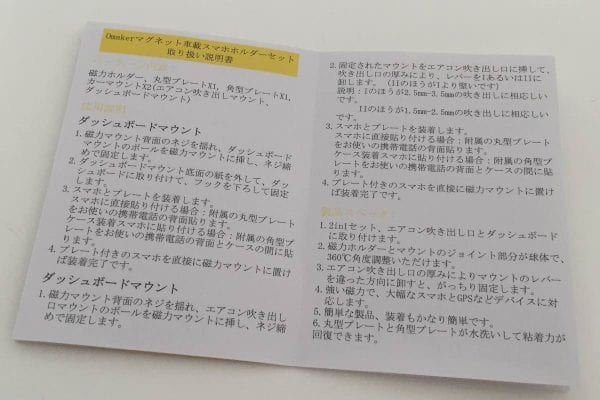 Omakerマグネット車載スマホホルダーセット
取り扱い説明書
磁力ホルダー、丸型プレートX1、角型プレートX1、
カーマウントX2(エアコン吹き出しマウント、
ダッシュボードマウント)
使用説明:
ダッシュボードマウント
1. 磁力マウント背面のネジを揺れ、ダッシュボード
マウントのボールを磁力マウントに挿し、ネジ締
めで固定します。
2. ダッシュボードマウント底面の紙を外して、ダッ
シュボードに取り付けて、フックを下ろして固定
します。
3. スマホとプレートを装着します。
スマホに直接貼り付ける場合：附属の丸型プレート
をお使いの携帯電話の背面貼ります。
ケース装着スマホに貼り付ける場合：附属の角型プ
レートをお使いの携帯電話の背面とケースの間に貼
ります。
4. プレート付きのスマホを直接に磁力マウントに置け
ば装着完了です。
ダッシュボードマウント
1. 磁力マウント背面のネジを揺れ、エアコン吹き出し
口マウントのボールを磁力マウントに挿し、ネジ締
めで固定します。
2. 固定されたマウントをエアコン吹き出し口に挿して、
吹き出し口の厚みにより、レバーをIあるいはIIに
卸します。（IIのほうがIより堅いです）
説明：Iのほうが2.5mm-3.5mmの吹き出しに相応しい
です。
IIのほうが1.5mm-2.5mmの吹き出しに相応しい
です。
3. スマホとプレートを装着します。
スマホに直接貼り付ける場合：附属の丸型プレート
をお使いの携帯電話の背面貼ります。
ケース装着スマホに貼り付ける場合：附属の角型プ
レートをお使いの携帯電話の背面とケースの間に貼
ります。
4. プレート付きのスマホを直接に磁力マウントに置け
ば装着完了です。
製品スペック：
1. 2in1セット、エアコン吹き出し口とダッシュボード
に取り付けます。
2. 磁力ホルダーとマウントのジョイント部分が球体で、
360℃角度調整いただけます。
3. エアコン吹き出し口の厚みによりマウントのレバー
を違った方向に卸すと、がっちり固定します。
4. 強い磁力で、大幅なスマホとGPSなどデバイスに対
応します。
5. 簡単な製品、装着もかなり簡単です。
6. 丸型プレートと角型プレートが水洗いして粘着力が
回復できます。